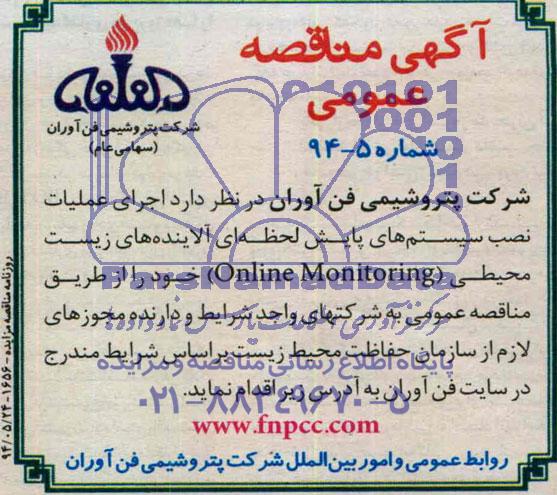 آگهی مناقصه
عمومی
شماره ۵-۹۴
شرکت پتروشیمی فن آوران
(سهامی عام)
شرکت پتروشیمی فن آوران در نظر دارد اجرای عملیات
نصب سیستم‌های پایش لحظه‌ای آلاینده‌های زیست
محیطی (Online Monitoring) خود را از طریق
مناقصه عمومی به شرکتهای واجد شرایط و دارنده مجوزهای
لازم از سازمان حفاظت محیط زیست براساس شرایط مندرج
در سایت فن آوران به آدرس زیر اقدام نماید.
www.fnpcc.com
روابط عمومی و امور بین الملل شرکت پتروشیمی فن آوران
روزنامه مناقصه مزایده - ۱۶۵۶ - ۹۴/۰۵/۲۴
ParsNamadData
پایگاه اطلاع رسانی مناقصه و مزایده
۰۲۱-۸۸۳۴۹۶۷۰-۵